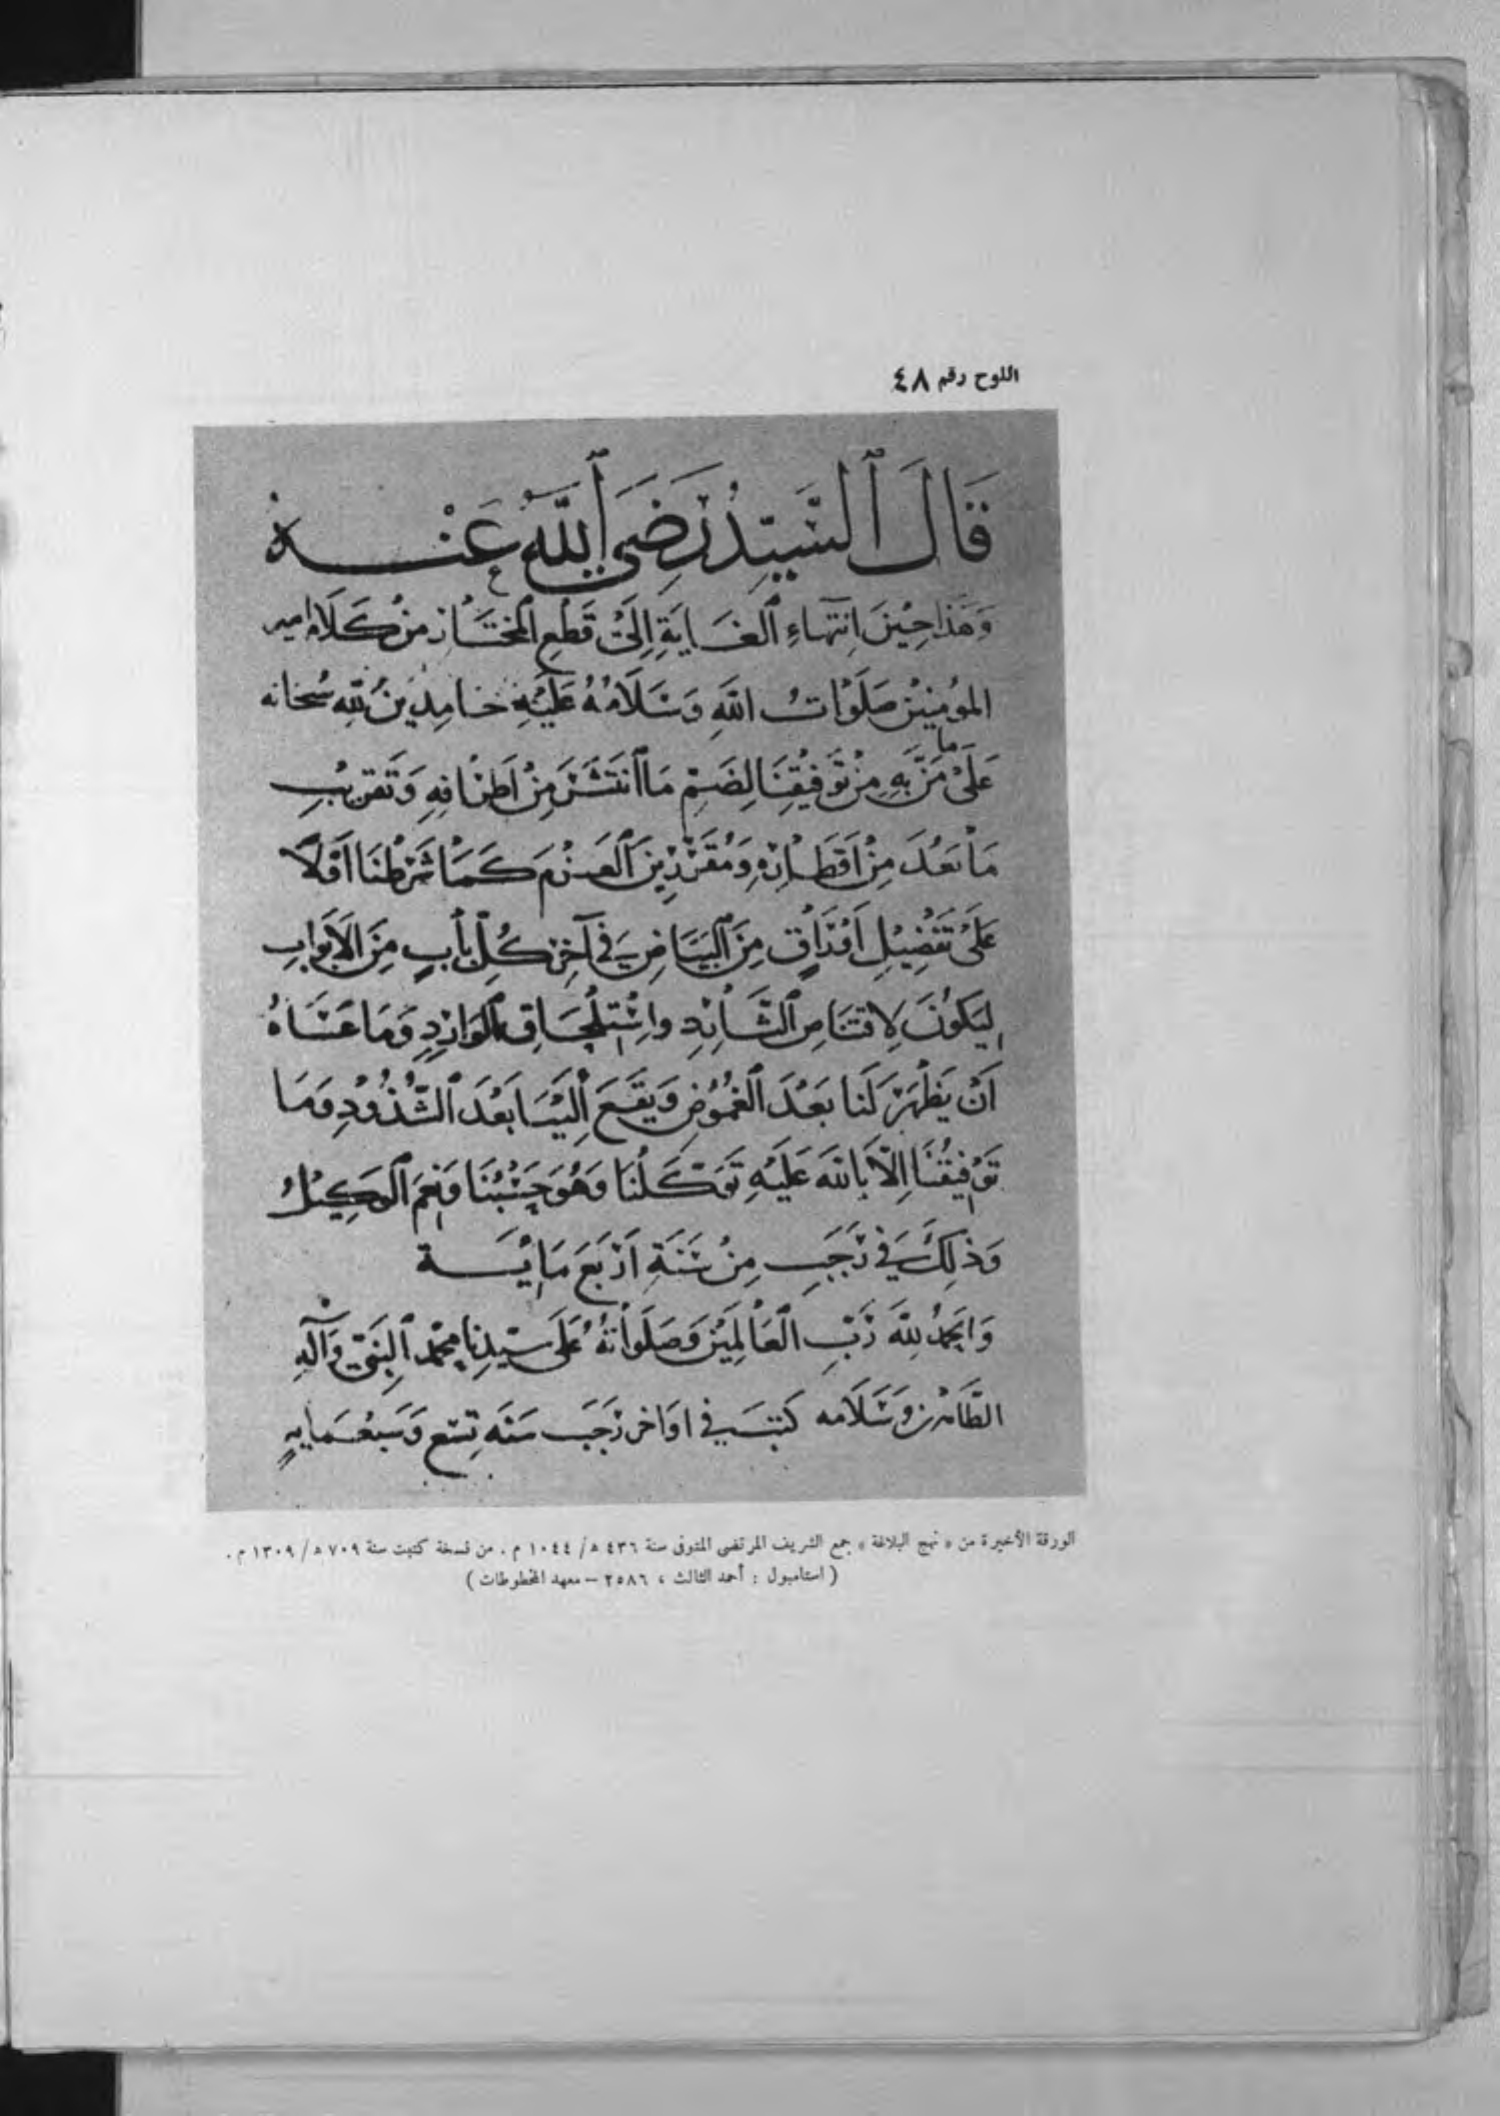 اللوح رقم ٤٨
قَالَ ٱلسَّيِّدُ رَضِيَ ٱللَّهُ عَنْهُ
وَهَذَا حِينَ انْتِهَاءِ ٱلغَايَةِ إِلَى قَطْعِ ٱلمُختَارِ مِنْ كَلَامِ امير
المُومِنِينَ صَلَوَاتُ اللهِ وَسَلَامُهُ عَلَيْهِ حَامِدِينَ لِلّهِ سُبحانه
عَلَى مَا مَنَّ بِهِ مِنْ تَوفِيقِنَا لِضَمِّ مَا ٱنتَشَرَ مِنْ أَطْرَافِهِ وَتَقرِيبِ
مَا بَعُدَ مِنْ أَقطَارِهِ وَمُقَرِّرِينَ ٱلعَزمَ كَمَا شَرَطْنَا أَوَّلًا
عَلَى تَفضِيلِ أَوْرَاقٍ مِنَ ٱلبَيَاضِ فِي آخِرِ كُلِّ بَابٍ مِنَ الأَبوَابِ
لِيَكُونَ لِاقتنَاصِ ٱلشَّارِدِ واسْتِلْحَاقِ ٱلوَارِدِ وَمَا عَسَاهُ
أَنْ يَظْهَرَ لَنا بَعْدَ ٱلغُمُوضِ وَيَقَعَ إِلَيْنَا بَعْدَ ٱلشُّذُوذِ وَمَا
تَوْفِيقُنَا إِلَّا بِاللهِ عَلَيْهِ تَوَكَّلْنَا وَهُوَ حَسْبُنَا وَنِعمَ ٱلوَكِيلُ
وَذَلِكَ فِي رَجَبٍ مِنْ سَنَةِ أَرْبَعِ مَائَة
وَالحَمدُ لِلّهِ رَبِّ ٱلعَالَمِينَ وَصَلَوَاتُهُ عَلَى سَيِّدِنَا مُحَمَّدٍ ٱلنَّبِيِّ وَآلِهِ
الطَّاهِرِين وَسَلَامه كتبت في اوَاخر رَجَب سَنَة تِسْع وَسَبعمَايه
الورقة الأخيرة من « نهج البلاغة » جمع الشريف المرتضى المتوفى سنة ٤٣٦ ﻫ/ ١٠٤٤ م . من نسخة كتبت سنة ٧٠٩ ﻫ/ ١٣٠٩ م .
( استامبول : أحمد الثالث ، ٢٥٨٦ – معهد المخطوطات )